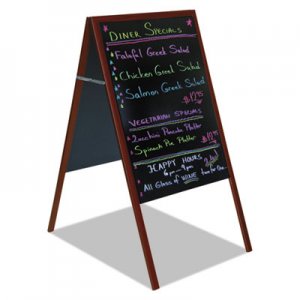 DINER SPECIALS
Falafel Greek Salad
Chicken Greek Salad
Salmon Greek Salad
$12.95
VEGETARIAN SPECIALS
Zucchini Pancake Platter
Spinach Pie Platter
HAPPY HOURS
6 pm - 9 pm
All Glass of WINE for One